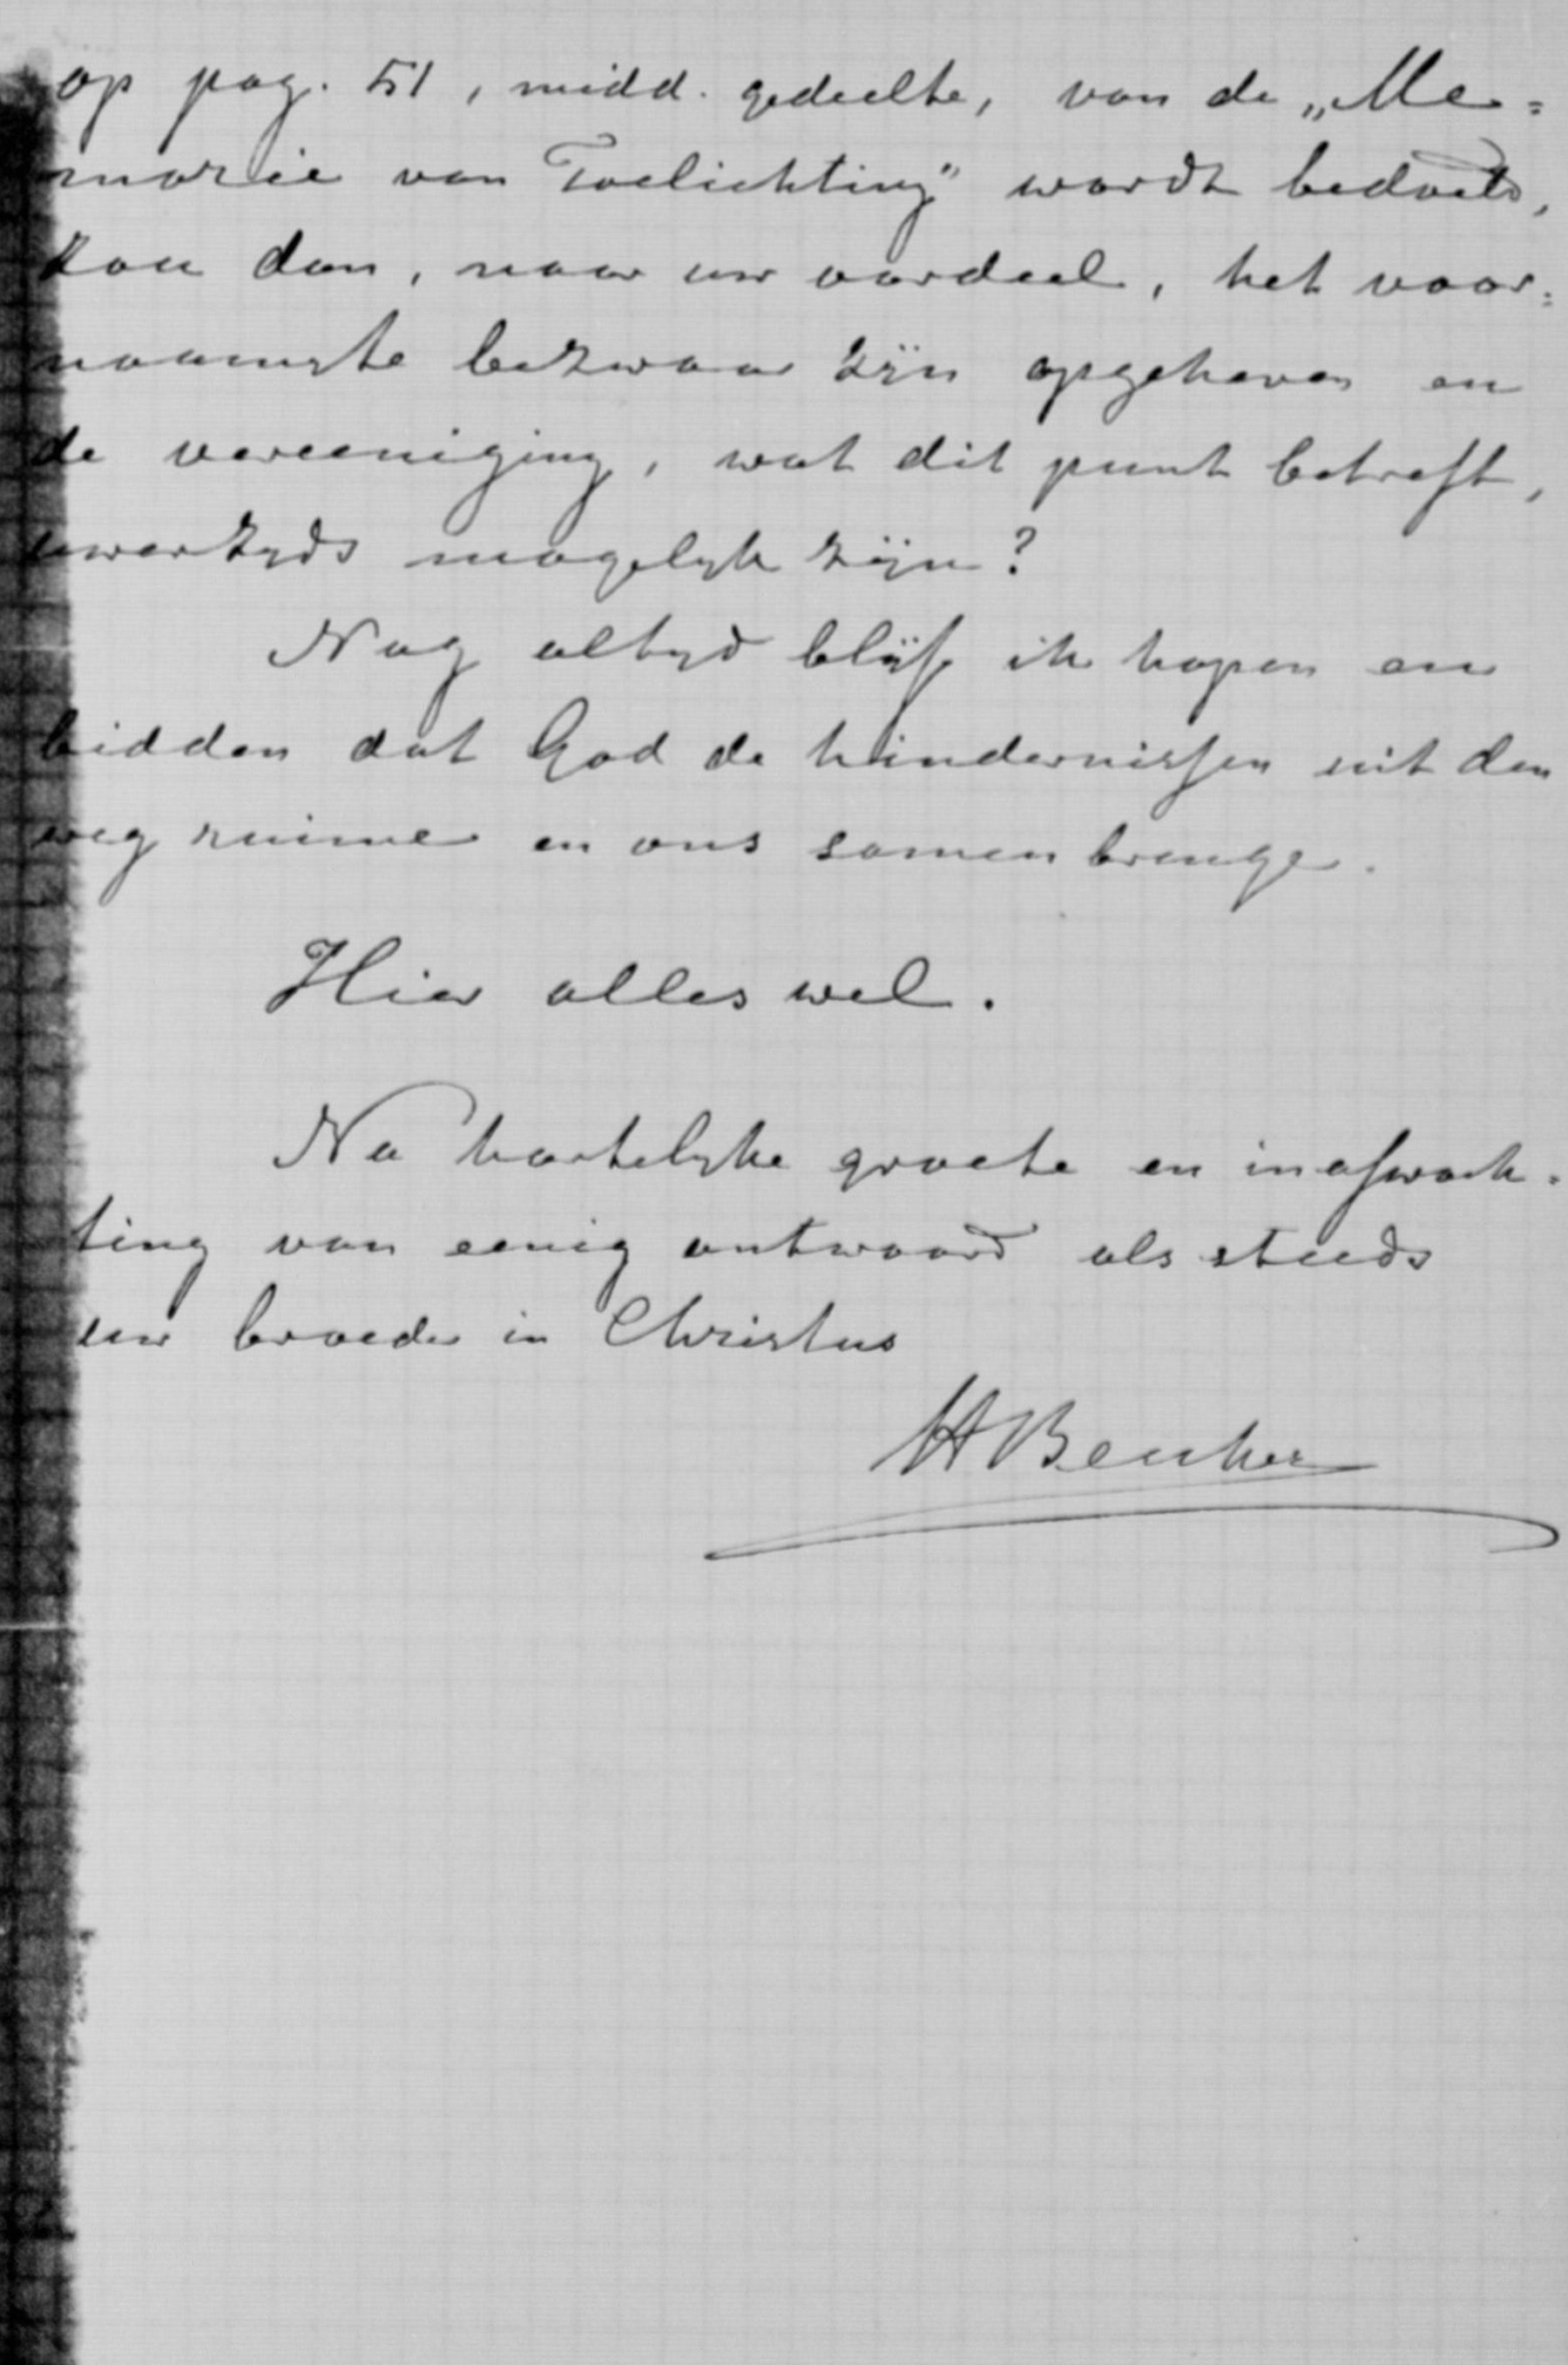 op pag. 51, midd. gedeelte, van de „Me=
morie van Toelichting" wordt bedoeld,
zou dan, naar uw oordeel, het voor=
naamste bezwaar zijn opgeheven en
de vereeniging, wat dit punt betreft,
uwerzyds mogelyk zijn?
Nog altyd blijf ik hopen en
bidden dat God de hindernissen uit den
weg ruime en ons samenbrenge.
Hier alles wel.
Na hartelyke groete en in afwach=
ting van eenig antwoord als steeds
uw broeder in Christus
H Beuker